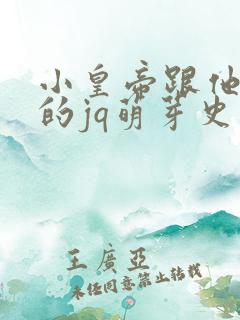 小皇帝跟他
的jq萌芽史
王廣亞
未经同意禁止转载